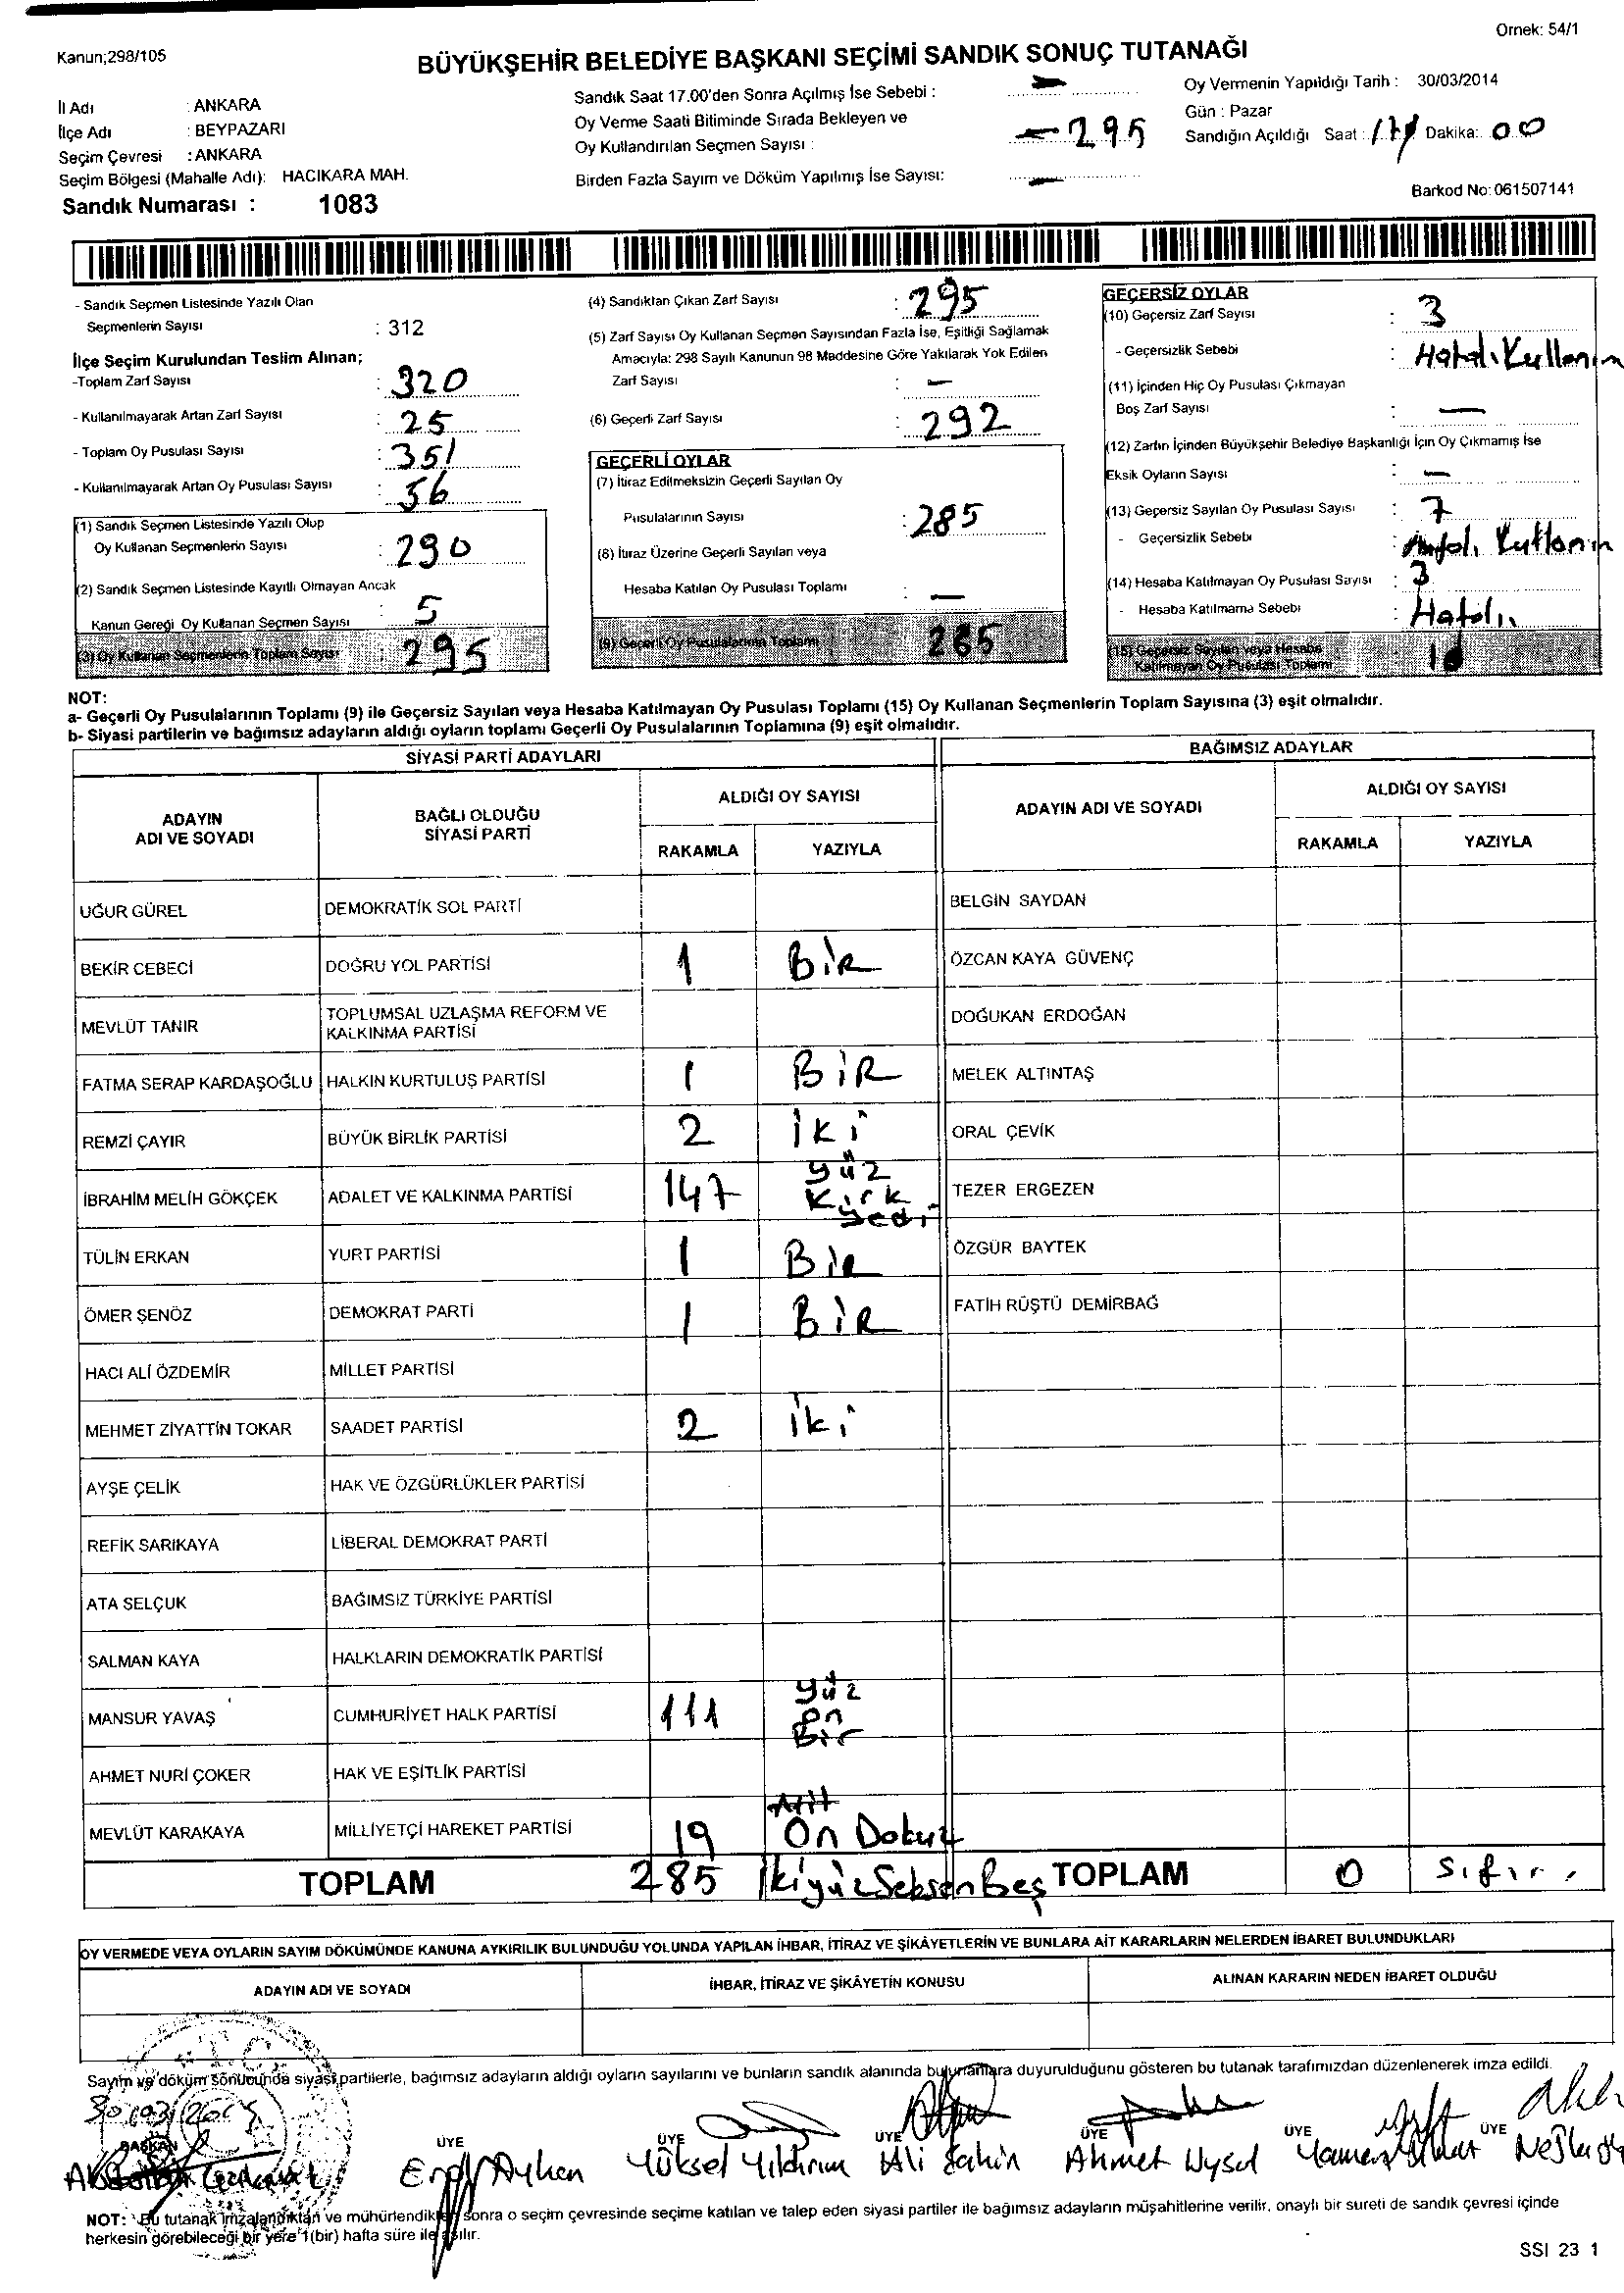 Ornek: 54/1
Kanun;298/105
BÜYÜKŞEHİR BELEDİYE BAŞKANI SEÇİMİ SANDIK SONUÇ TUTANAĞI
İl Adı : ANKARA
İlçe Adı : BEYPAZARI
Seçim Çevresi : ANKARA
Seçim Bölgesi (Mahalle Adı): HACIKARA MAH.
Sandık Numarası : 1083
Sandık Saat 17.00'den Sonra Açılmış İse Sebebi : —
Oy Verme Saati Bitiminde Sırada Bekleyen ve
Oy Kullandırılan Seçmen Sayısı : 295
Birden Fazla Sayım ve Döküm Yapılmış İse Sayısı: —
Oy Vermenin Yapıldığı Tarih : 30/03/2014
Gün : Pazar
Sandığın Açıldığı Saat : 17 Dakika: 00
Barkod No: 061507141
- Sandık Seçmen Listesinde Yazılı Olan
Seçmenlerin Sayısı : 312
İlçe Seçim Kurulundan Teslim Alınan;
-Toplam Zarf Sayısı : 320
- Kullanılmayarak Artan Zarf Sayısı : 25
- Toplam Oy Pusulası Sayısı : 351
- Kullanılmayarak Artan Oy Pusulası Sayısı : 56
(1) Sandık Seçmen Listesinde Yazılı Olup
Oy Kullanan Seçmenlerin Sayısı : 290
(2) Sandık Seçmen Listesinde Kayıtlı Olmayan Ancak
Kanun Gereği Oy Kullanan Seçmen Sayısı : 5
(3) Oy Kullanan Seçmenlerin Toplam Sayısı : 295
(4) Sandıktan Çıkan Zarf Sayısı : 295
(5) Zarf Sayısı Oy Kullanan Seçmen Sayısından Fazla İse, Eşitliği Sağlamak
Amacıyla: 298 Sayılı Kanunun 98 Maddesine Göre Yakılarak Yok Edilen
Zarf Sayısı : —
(6) Geçerli Zarf Sayısı : 292
GEÇERLİ OYLAR
(7) İtiraz Edilmeksizin Geçerli Sayılan Oy
Pusulalarının Sayısı : 285
(8) İtiraz Üzerine Geçerli Sayılan veya
Hesaba Katılan Oy Pusulası Toplamı : —
(9) Geçerli Oy Pusulalarının Toplamı 285
GEÇERSİZ OYLAR
(10) Geçersiz Zarf Sayısı : 3
- Geçersizlik Sebebi : Hatalı Kullanım
(11) İçinden Hiç Oy Pusulası Çıkmayan
Boş Zarf Sayısı : —
(12) Zarfın İçinden Büyükşehir Belediye Başkanlığı İçin Oy Çıkmamış İse
Eksik Oyların Sayısı : —
(13) Geçersiz Sayılan Oy Pusulası Sayısı : 7
- Geçersizlik Sebebi : Kullanım
(14) Hesaba Katılmayan Oy Pusulası Sayısı : 3
- Hesaba Katılmama Sebebi : Hatalı
(15) Geçersiz Sayılan veya Hesaba
Katılmayan Oy Pusulası Toplamı 10
NOT:
a- Geçerli Oy Pusulalarının Toplamı (9) ile Geçersiz Sayılan veya Hesaba Katılmayan Oy Pusulası Toplamı (15) Oy Kullanan Seçmenlerin Toplam Sayısına (3) eşit olmalıdır.
b- Siyasi partilerin ve bağımsız adayların aldığı oyların toplamı Geçerli Oy Pusulalarının Toplamına (9) eşit olmalıdır.
SİYASİ PARTİ ADAYLARI
BAĞIMSIZ ADAYLAR
ADAYIN ADI VE SOYADI
BAĞLI OLDUĞU SİYASİ PARTİ
ALDIĞI OY SAYISI
RAKAMLA YAZIYLA
ADAYIN ADI VE SOYADI
ALDIĞI OY SAYISI
RAKAMLA YAZIYLA
UĞUR GÜREL DEMOKRATİK SOL PARTİ BELGİN SAYDAN
BEKİR CEBECİ DOĞRU YOL PARTİSİ 1 BİR ÖZCAN KAYA GÜVENÇ
MEVLÜT TANIR TOPLUMSAL UZLAŞMA REFORM VE KALKINMA PARTİSİ DOĞUKAN ERDOĞAN
FATMA SERAP KARDAŞOĞLU HALKIN KURTULUŞ PARTİSİ 1 BİR MELEK ALTINTAŞ
REMZİ ÇAYIR BÜYÜK BİRLİK PARTİSİ 2 İki ORAL ÇEVİK
İBRAHİM MELİH GÖKÇEK ADALET VE KALKINMA PARTİSİ 147 yüz Kırk yedi TEZER ERGEZEN
TÜLİN ERKAN YURT PARTİSİ 1 Bir ÖZGÜR BAYTEK
ÖMER ŞENÖZ DEMOKRAT PARTİ 1 BİR FATİH RÜŞTÜ DEMİRBAĞ
HACI ALİ ÖZDEMİR MİLLET PARTİSİ
MEHMET ZİYATTİN TOKAR SAADET PARTİSİ 2 iki
AYŞE ÇELİK HAK VE ÖZGÜRLÜKLER PARTİSİ
REFİK SARIKAYA LİBERAL DEMOKRAT PARTİ
ATA SELÇUK BAĞIMSIZ TÜRKİYE PARTİSİ
SALMAN KAYA HALKLARIN DEMOKRATİK PARTİSİ
MANSUR YAVAŞ CUMHURİYET HALK PARTİSİ 111 yüz on Bir
AHMET NURİ ÇOKER HAK VE EŞİTLİK PARTİSİ
MEVLÜT KARAKAYA MİLLİYETÇİ HAREKET PARTİSİ 19 On Dokuz
TOPLAM 285 İkiyüzSeksenBeş TOPLAM 0 Sıfır.
OY VERMEDE VEYA OYLARIN SAYIM DÖKÜMÜNDE KANUNA AYKIRILIK BULUNDUĞU YOLUNDA YAPILAN İHBAR, İTİRAZ VE ŞİKÂYETLERİN VE BUNLARA AİT KARARLARIN NELERDEN İBARET BULUNDUKLARI
ADAYIN ADI VE SOYADI İHBAR, İTİRAZ VE ŞİKÂYETİN KONUSU ALINAN KARARIN NEDEN İBARET OLDUĞU
Sayım ve döküm sonucunda siyasi partilerle, bağımsız adayların aldığı oyların sayılarını ve bunların sandık alanında bulunanlara duyurulduğunu gösteren bu tutanak tarafımızdan düzenlenerek imza edildi.
BAŞKAN ÜYE ÜYE ÜYE ÜYE ÜYE ÜYE
Ayhan Yüksel Yıldırım Ali Şahin Ahmet Uysal
NOT: Bu tutanak imzalandıktan ve mühürlendikten sonra o seçim çevresinde seçime katılan ve talep eden siyasi partiler ile bağımsız adayların müşahitlerine verilir, onaylı bir sureti de sandık çevresi içinde
herkesin görebileceği bir yere 1(bir) hafta süre ile asılır.
SSI 23 1